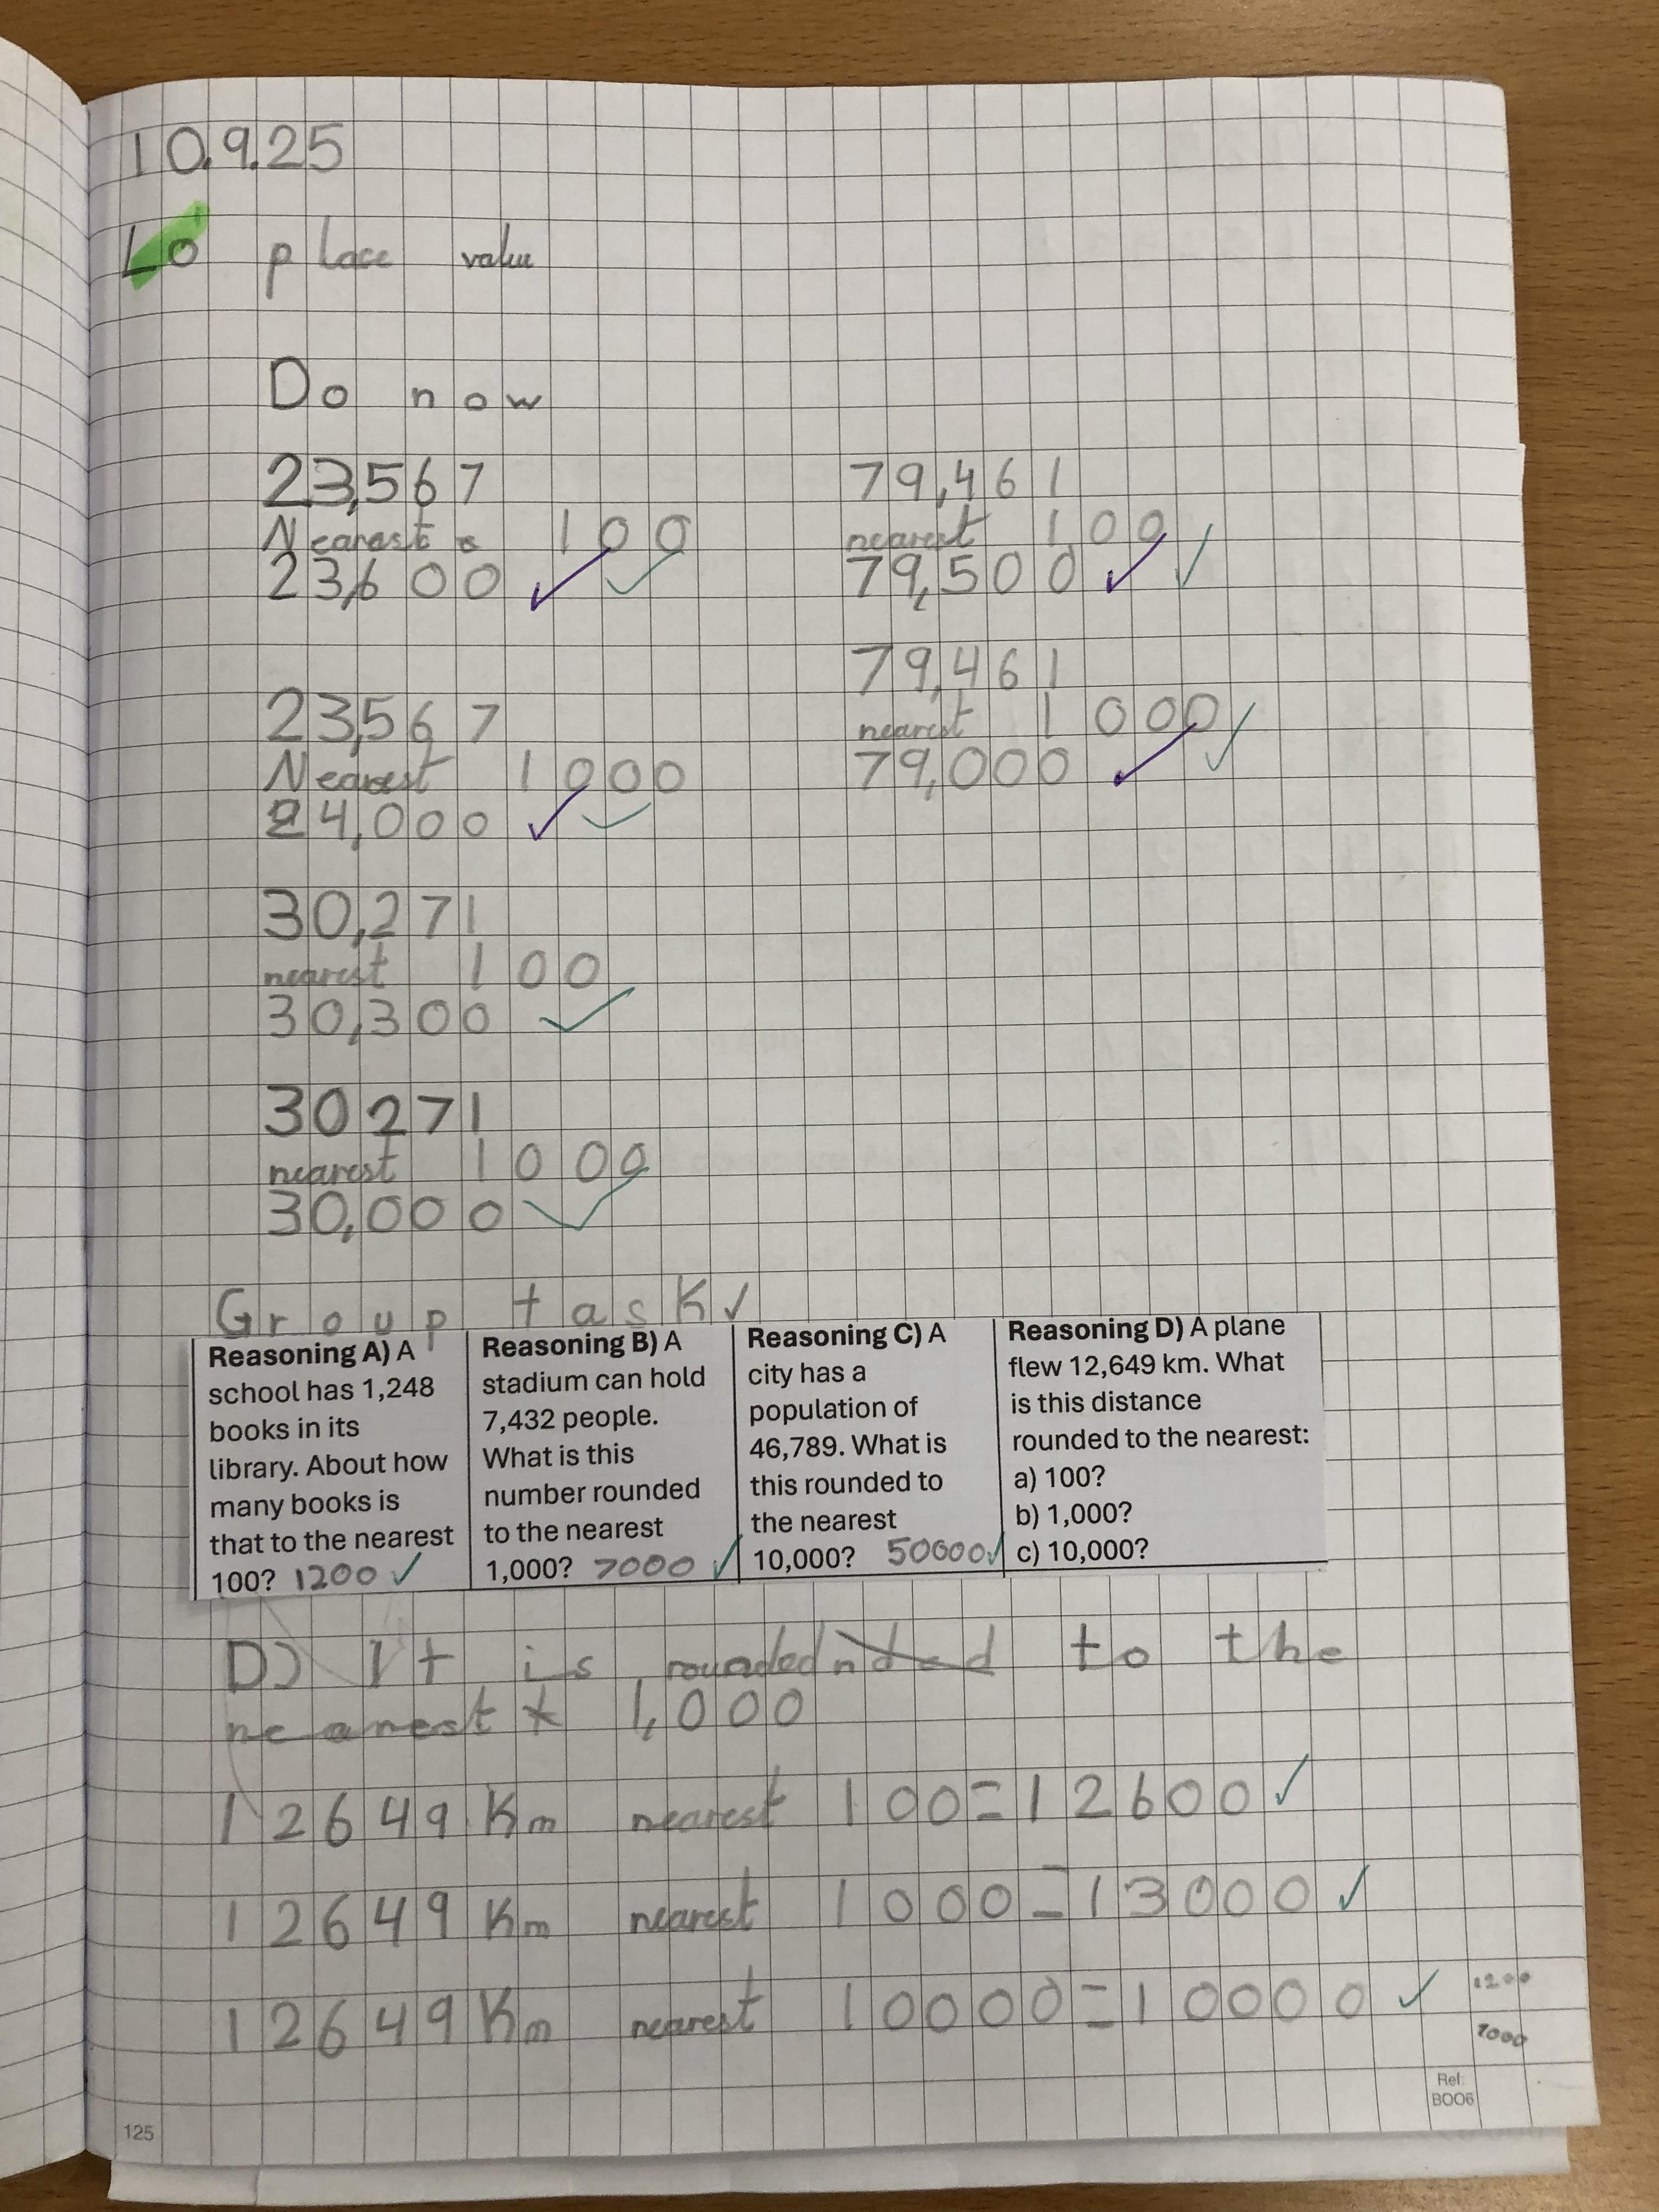 10.9.25
LO place value
Do now
23,567
Nearest 100
23,600
23,567
Nearest 1000
24,000
30,271
nearest 100
30,300
30271
nearest 1000
30,000
79,461
nearest 100
79,500
79,461
nearest 1000
79,000
Group task
Reasoning A) A
school has 1,248
books in its
library. About how
many books is
that to the nearest
100? 1200
Reasoning B) A
stadium can hold
7,432 people.
What is this
number rounded
to the nearest
1,000? 7000
Reasoning C) A
city has a
population of
46,789. What is
this rounded to
the nearest
10,000? 50000
Reasoning D) A plane
flew 12,649 km. What
is this distance
rounded to the nearest:
a) 100?
b) 1,000?
c) 10,000?
D) It is rounded to the
nearest 1,000
12649 Km nearest 100=12600
12649 Km nearest 1000=13000
12649 Km nearest 10000=10000
1200
7000
Ref:
BOO6
125